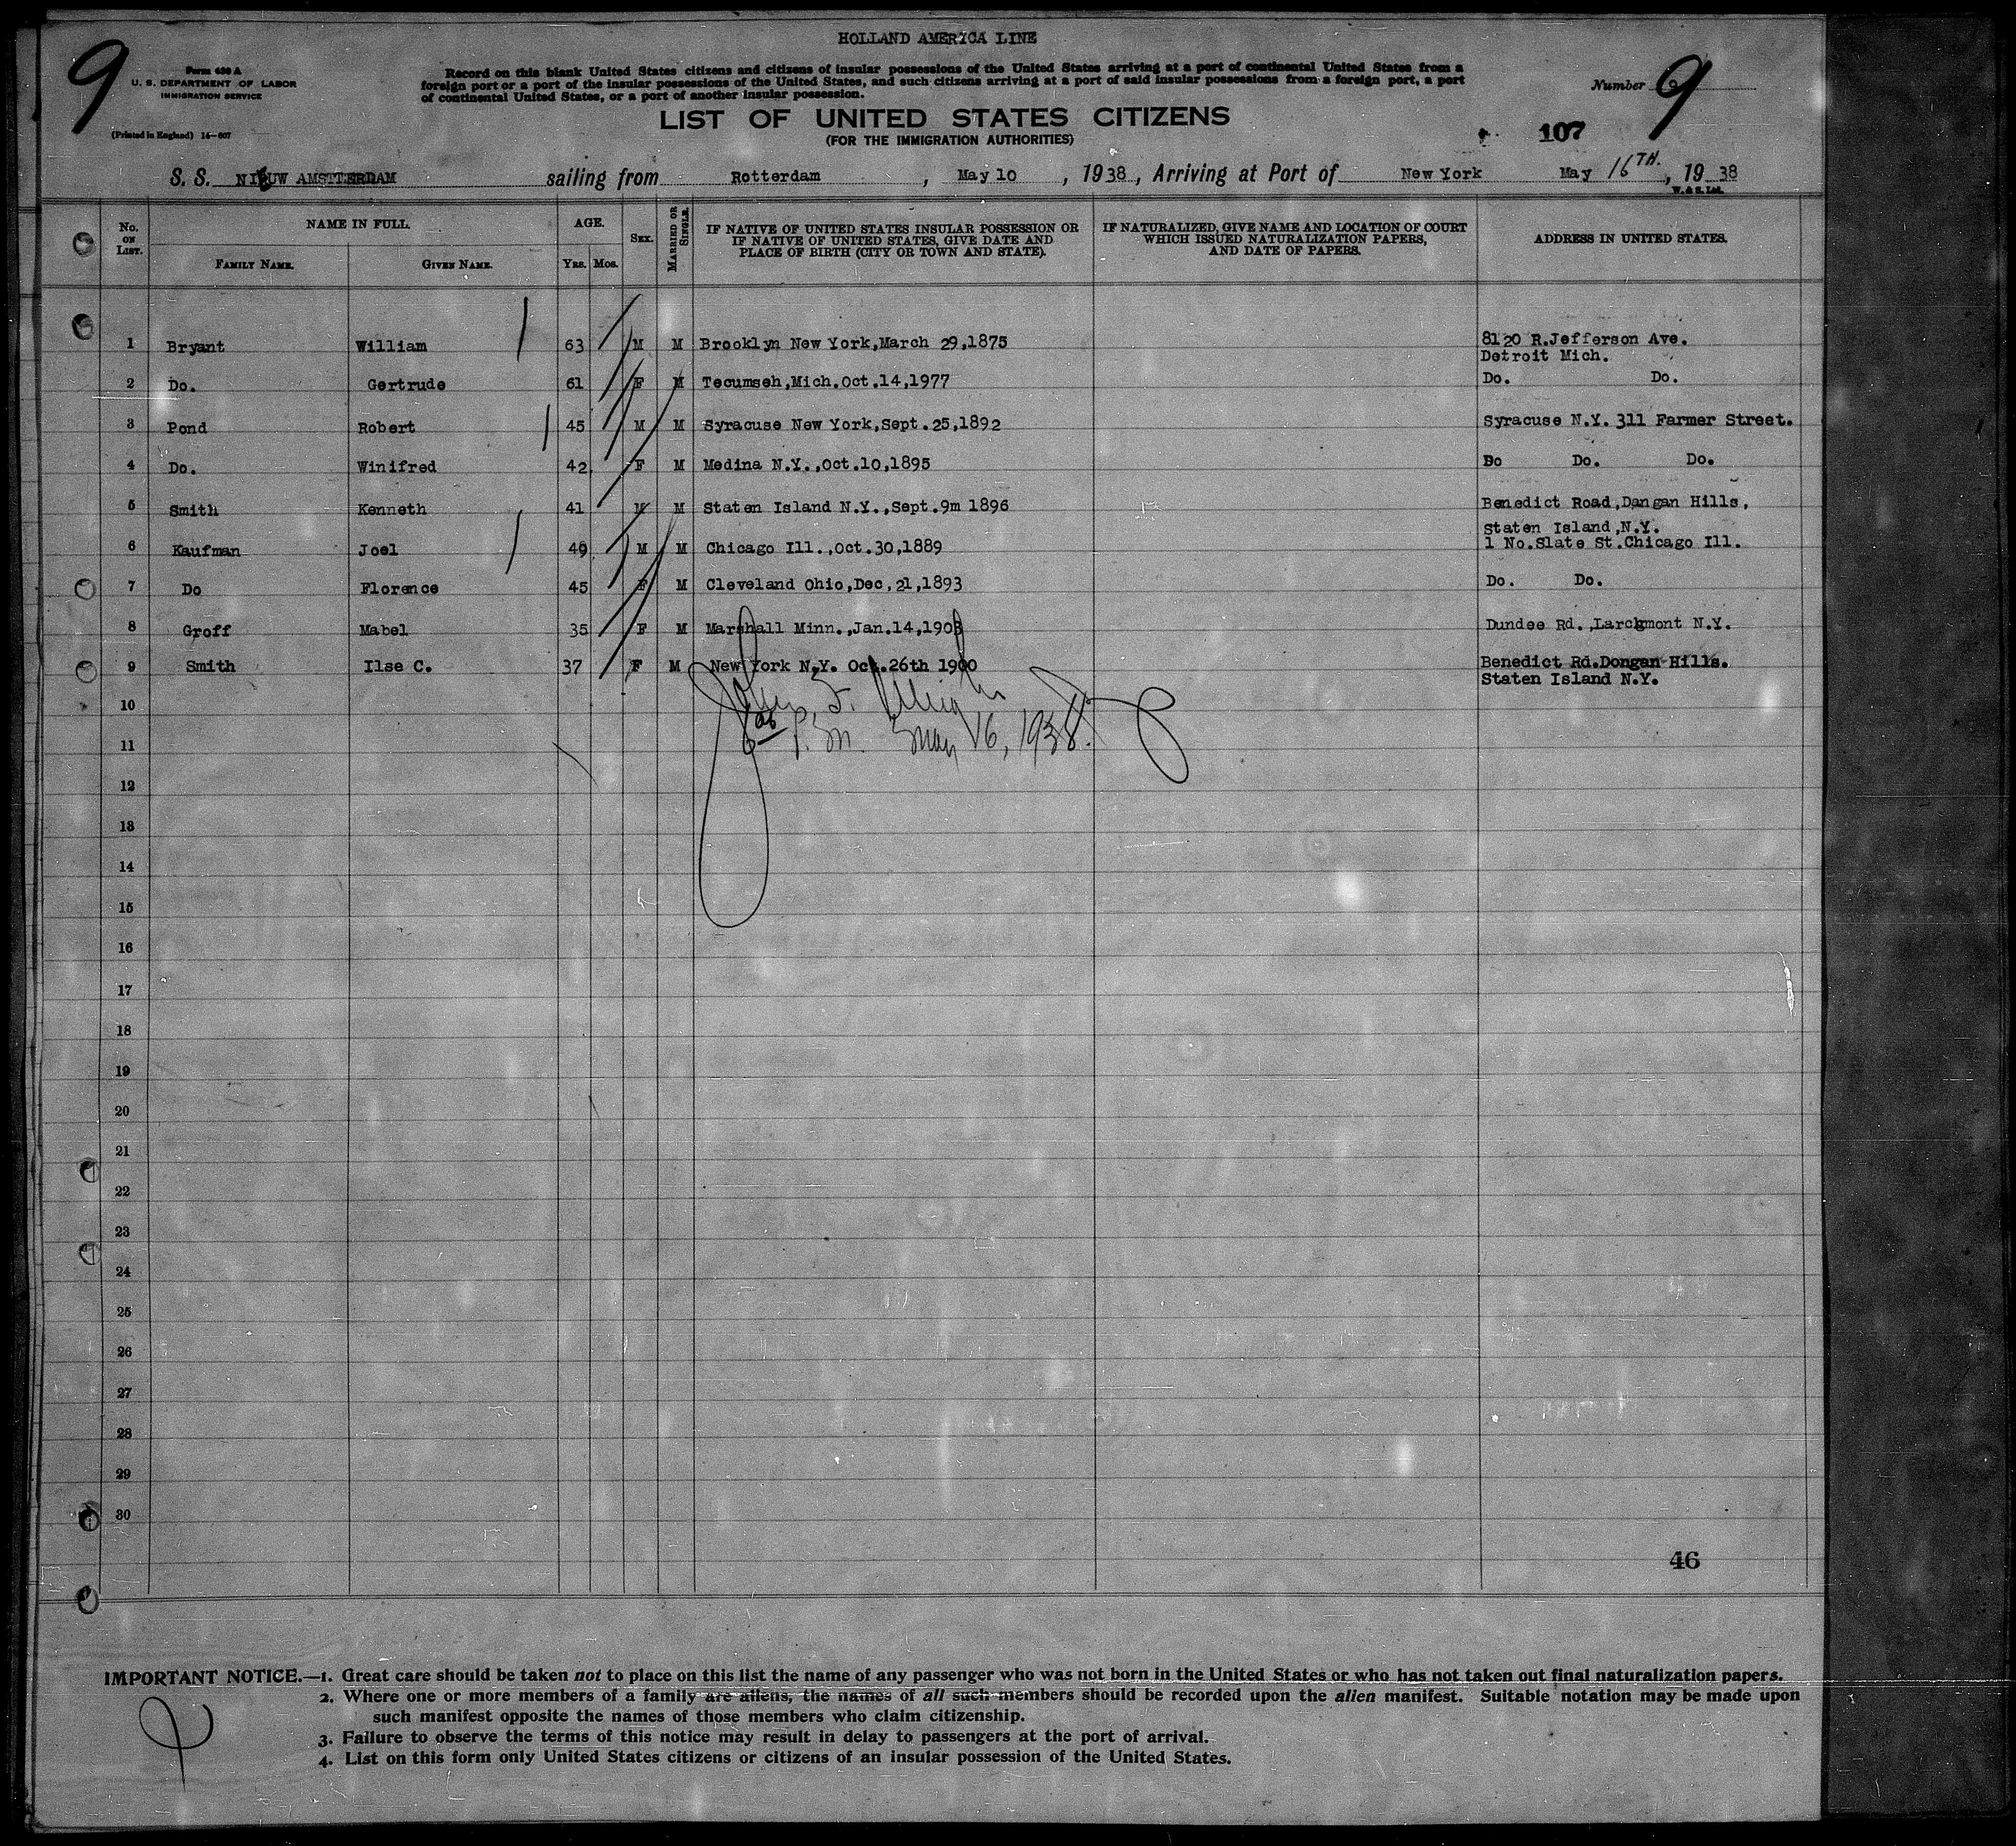 HOLLAND AMERICA LINE
9
Form 630 A
U. S. DEPARTMENT OF LABOR
IMMIGRATION SERVICE
(Printed in England) 14—607
Record on this blank United States citizens and citizens of insular possessions of the United States arriving at a port of continental United States from a
foreign port or a port of the insular possessions of the United States, and such citizens arriving at a port of said insular possessions from a foreign port, a port
of continental United States, or a port of another insular possession.
Number 9
LIST OF UNITED STATES CITIZENS
(FOR THE IMMIGRATION AUTHORITIES)
107
S. S. NIEUW AMSTTERDAM sailing from Rotterdam , May 10 , 1938, Arriving at Port of New York May 16TH. , 1938
W. & S. Ltd.
No. ON LIST. NAME IN FULL. AGE. SEX. MARRIED OR SINGLE. IF NATIVE OF UNITED STATES INSULAR POSSESSION OR IF NATIVE OF UNITED STATES, GIVE DATE AND PLACE OF BIRTH (CITY OR TOWN AND STATE). IF NATURALIZED, GIVE NAME AND LOCATION OF COURT WHICH ISSUED NATURALIZATION PAPERS, AND DATE OF PAPERS. ADDRESS IN UNITED STATES.
FAMILY NAME. GIVEN NAME. YRS. MOS.
1 Bryant William 63 M M Brooklyn New York,March 29,1875 8120 R.Jefferson Ave.
Detroit Mich.
2 Do. Gertrude 61 F M Tecumseh,Mich.Oct.14,1977 Do. Do.
3 Pond Robert 45 M M Syracuse New York,Sept.25,1892 Syracuse N.Y. 311 Farmer Street.
4 Do. Winifred 42 F M Medina N.Y.,Oct.10,1895 Do Do. Do.
5 Smith Kenneth 41 M M Staten Island N.Y.,Sept.9m 1896 Benedict Road,Dangan Hills,
Staten Island,N.Y.
6 Kaufman Joel 49 M M Chicago Ill.,Oct.30,1889 1 No.Slate St.Chicago Ill.
7 Do Florence 45 F M Cleveland Ohio,Dec,21,1893 Do. Do.
8 Groff Mabel 35 F M Marshall Minn.,Jan.14,1903 Dundee Rd.,Larchmont N.Y.
9 Smith Ilse C. 37 F M New York N.Y. Oct.26th 1900 Benedict Rd.Dongan Hills.
Staten Island N.Y.
10
P.M. May 16, 1938.
11
12
13
14
15
16
17
18
19
20
21
22
23
24
25
26
27
28
29
30
46
IMPORTANT NOTICE.—1. Great care should be taken not to place on this list the name of any passenger who was not born in the United States or who has not taken out final naturalization papers.
2. Where one or more members of a family are aliens, the names of all such members should be recorded upon the alien manifest. Suitable notation may be made upon
such manifest opposite the names of those members who claim citizenship.
3. Failure to observe the terms of this notice may result in delay to passengers at the port of arrival.
4. List on this form only United States citizens or citizens of an insular possession of the United States.